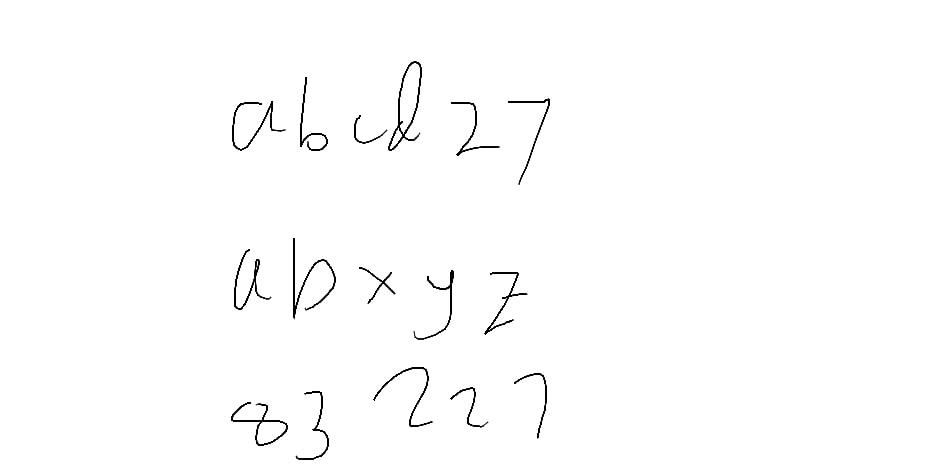 abcd27
abxyz
83 227